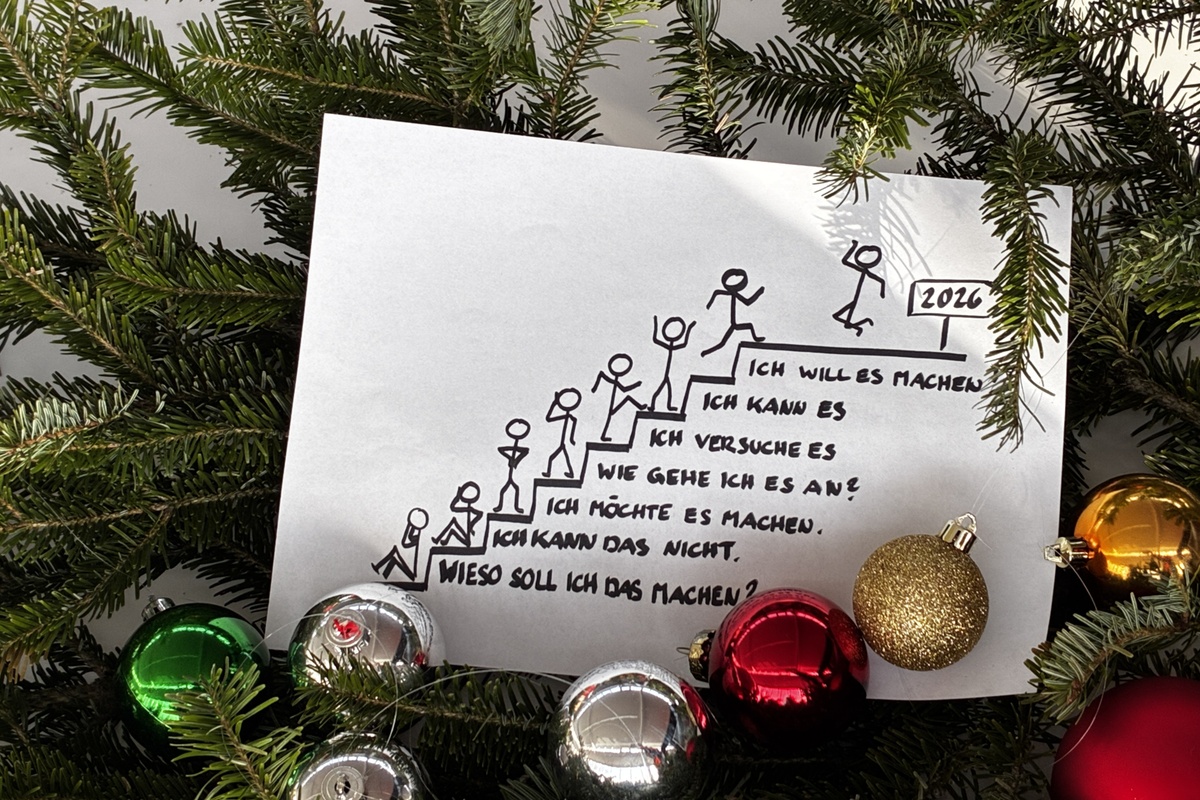 2026
ICH WILL ES MACHEN
ICH KANN ES
ICH VERSUCHE ES
WIE GEHE ICH ES AN?
ICH MÖCHTE ES MACHEN.
ICH KANN DAS NICHT.
WIESO SOLL ICH DAS MACHEN?